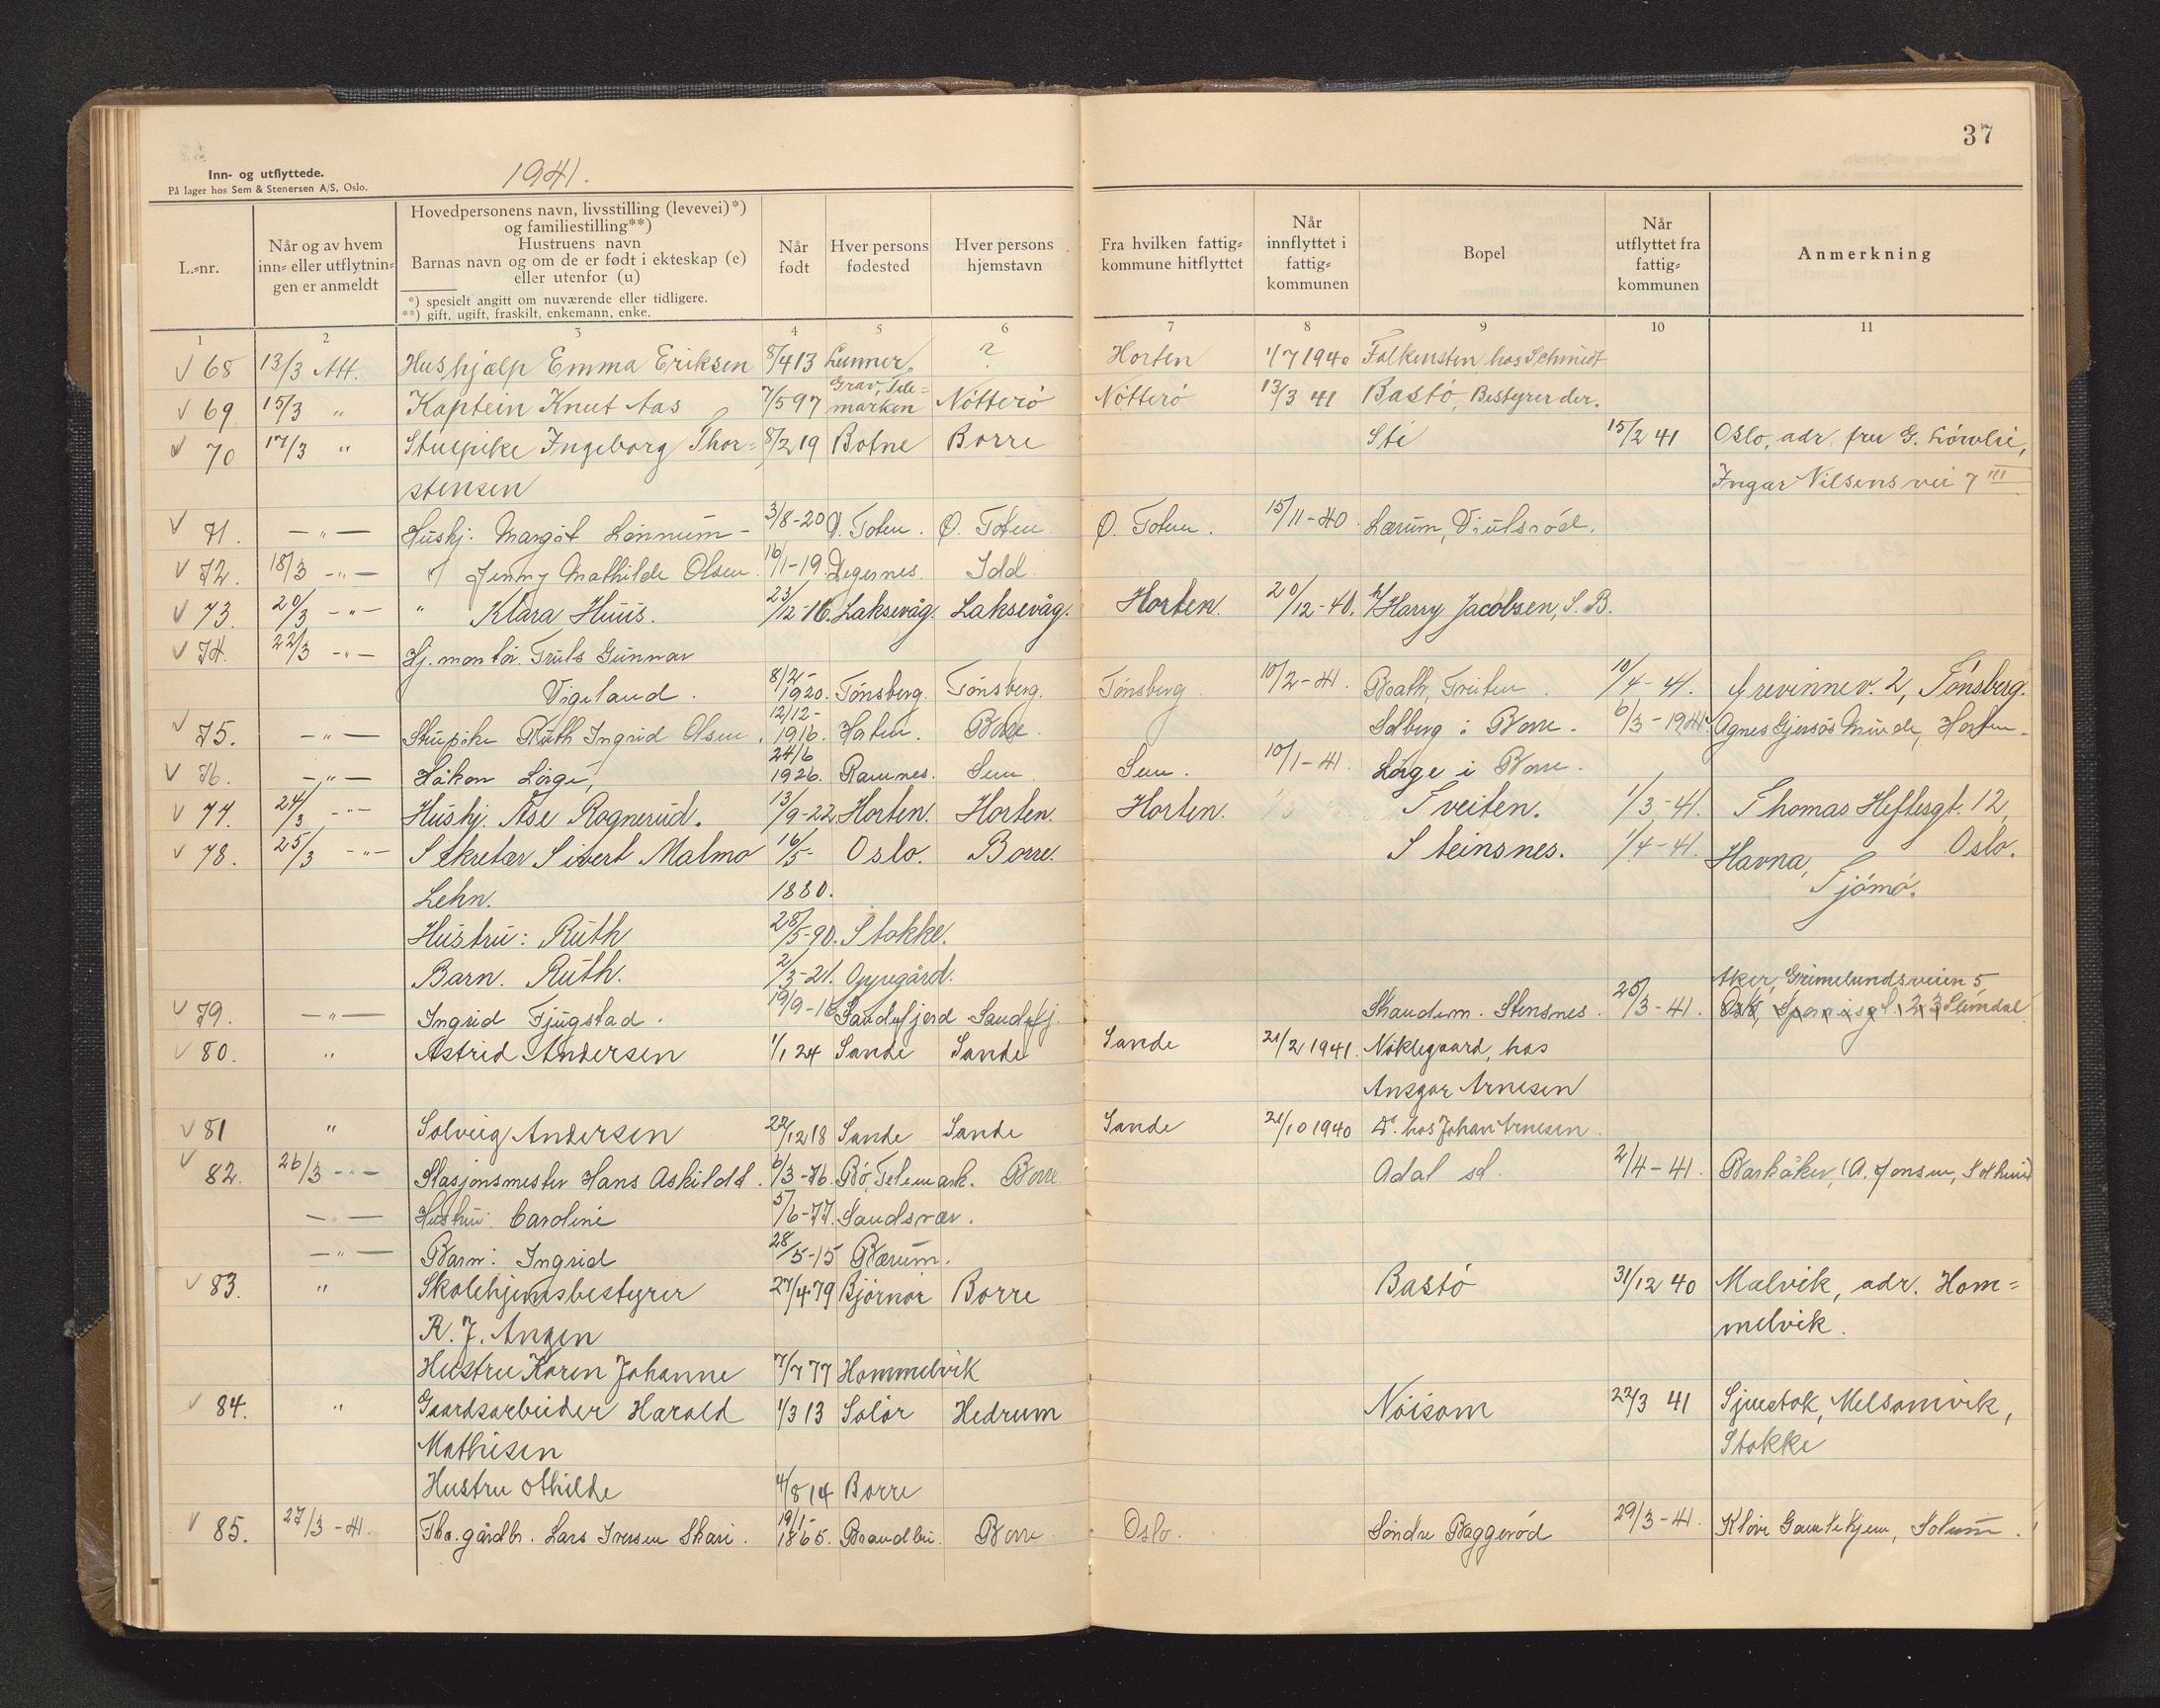 37
Inn- og utflyttede.
På lager hos Sem & Stenersen A/S, Oslo.
1941.
L.-nr.
Når og av hvem inn- eller utflytningen er anmeldt
Hovedpersonens navn, livsstilling (levevei)*)
og familiestilling**)
Hustruens navn
Barnas navn og om de er født i ekteskap (e)
eller utenfor (u)
*) spesielt angitt om nuværende eller tidligere.
**) gift, ugift, fraskilt, enkemann, enke.
Når født
Hver persons fødested
Hver persons hjemstavn
Fra hvilken fattigkommune hitflyttet
Når innflyttet i fattigkommunen
Bopel
Når utflyttet fra fattigkommunen
Anmerkning
1 2 3 4 5 6 7 8 9 10 11
68 13/3 Att. Hushjælp Emma Eriksen 8/4 13 Lunner. ? Horten 1/7 1940 Falkensten, hos Schmidt
69 15/3 " Kaptein Knut Aas 7/5 97 Grav, Tele=marken Nötterö Nötterö 13/3 41 Bastö, Bestyrer der.
70 17/3 " Stuepike Ingeborg Thor= 8/2 19 Botne Borre Sti 15/2 41 Oslo, adr. fru G.
stensen Ingar Nilsens vei 7 III
71. —"— Hushj. Margot Lönnum 3/8-20 Ø. Toten. Ø. Toten. Ø. Toten. 15/11-40 Lærum, Viulsröd.
72. 18/3 -"- " Jenny Mathilde Olsen. 16/1-19. Degernes. Idd.
73. 20/3 -"- " Klara Huus. 23/12-16. Laksevåg. Laksevåg. Horten. 20/12-40. h/Harry Jacobsen, S.B.
74. 22/3 -"- Hj. montör. Truls Gunnar
Vigeland. 8/2-1920. Tönsberg. Tönsberg. Tönsberg. 10/2-41. Brath, Freiten. 10/4-41. Grevinnev. 2, Tönsberg.
75. —"— Stupike Ruth Ingrid Olsen. 12/12-1916. Horten. Borre. Solberg i Borre. 6/3-1941. Agnes Gjersös Minde, Horten.
76. —"— Håkon Lörge, 24/6 1926. Ramnes. Sem. Sem. 10/1-41. Lörge i Borre.
77. 24/3 -"- Hushj. Åse Rognerud. 13/9-22. Horten. Horten. Horten. Tveiten. 1/3-41. Thomas Heftesgt. 12,
Oslo.
78. 25/3 -"- Sekretær Sivert Malmo 16/5- Oslo. Borre. Steinsnes. 1/4-41. Havna,
Tjömö.
Lehn. 1880.
Hustru: Ruth 28/5-90. Stokke.
Barn. Ruth. 2/3-21. Oppegård.
Aker, Grimelundsveien 5
79. —"— Ingrid Fjugstad. 19/9-16 Sandefjord Sandefj. Skaudem. Stensnes. 25/3-41. 23 Slemdal
80. " Astrid Andersen 1/1 24 Sande Sande Sande 21/2 1941. Nöklegaard, hos
Ansgar Arnesen
81 " Solveig Andersen 22/12 18 Sande Sande Sande 21/10 1940 Do. hos Johan Arnesen.
82. 26/3 -"- Stasjonsmester Hans Askildt. 6/3-76. Bö, Telemark. Borre Adal st. 2/4-41. Barkåker, (A. Jonsen,
—"— Hustru: Caroline 5/6-77. Sandsvær.
—"— Barn: Ingrid 28/5-15 Bærum.
83. " Skolehjemsbestyrer 27/4 79 Björnör Borre Bastö 31/12 40 Malvik, adr. Hom=
R. J. Angen melvik.
Hustru Karen Johanne 7/7 77 Hommelvik
84. " Gaardsarbeider Harald 1/3 13 Solör Hedrum Nöisom 22/3 41 Sjuestok, Melsomvik,
Mathisen Stokke
Hustru Othilde 4/8 14 Borre
85. 27/3-41. Fhv. gårdbr. Lars Iversen Skari. 19/1-1865. Brandbu. Borre Oslo. Söndre Baggeröd 29/3-41. Klöve Gamlehjem, Solum.